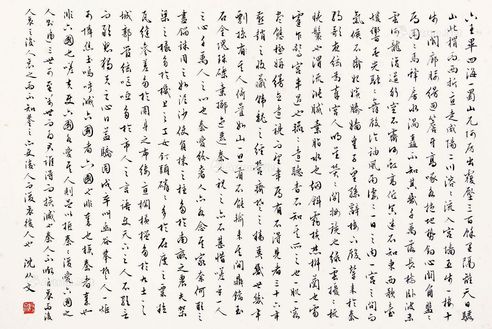 六王畢四海一蜀山兀阿房出覆壓三百餘里隔離天日驪
山北構而西折直走咸陽二川溶溶流入宮牆五步一樓十
步一閣廊腰縵回簷牙高啄各抱地勢鉤心鬥角盤盤
焉囷囷焉蜂房水渦矗不知其幾千萬落長橋臥波未
雲何龍複道行空不霽何虹高低冥迷不知東西歌臺
暖響春光融融舞殿冷袖風雨淒淒一日之內一宮之間而
氣候不齊妃嬪媵嬙王子皇孫辭樓下殿輦來於秦
朝歌夜絃為秦宮人明星熒熒開妝鏡也綠雲擾擾
梳曉鬟也渭流漲膩棄脂水也煙斜霧橫焚椒蘭也雷
霆乍驚宮車過也轆轆遠聽杳不知其所之也一肌一容
盡態極妍縵立遠視而望幸焉有不得見者三十六年
燕趙之收藏韓魏之經營齊楚之精英幾世幾年
剽掠其人倚疊如山一旦不能有輸來其間鼎鐺玉
石金塊珠礫棄擲邐迤秦人視之亦不甚惜嗟乎一人
之心千萬人之心也秦愛紛奢人亦念其家奈何取之
盡錙銖用之如泥沙使負棟之柱多於南畝之農夫架
梁之椽多於機上之工女釘頭磷磷多於在庾之粟粒
瓦縫參差多於周身之帛縷直欄橫檻多於九土之
城郭管絃嘔啞多於市人之言語使天下之人不敢言
而敢怒獨夫之心日益驕固戍卒叫函谷舉楚人一炬
可憐焦土嗚呼滅六國者六國也非秦也族秦者秦也
非天下也嗟夫使六國各愛其人則足以拒秦秦復愛六國之
人則遞三世可至萬世而為君誰得而族滅也秦人不暇自哀而後
人哀之後人哀之而不鑒之亦使後人而復哀後人也 沈從文